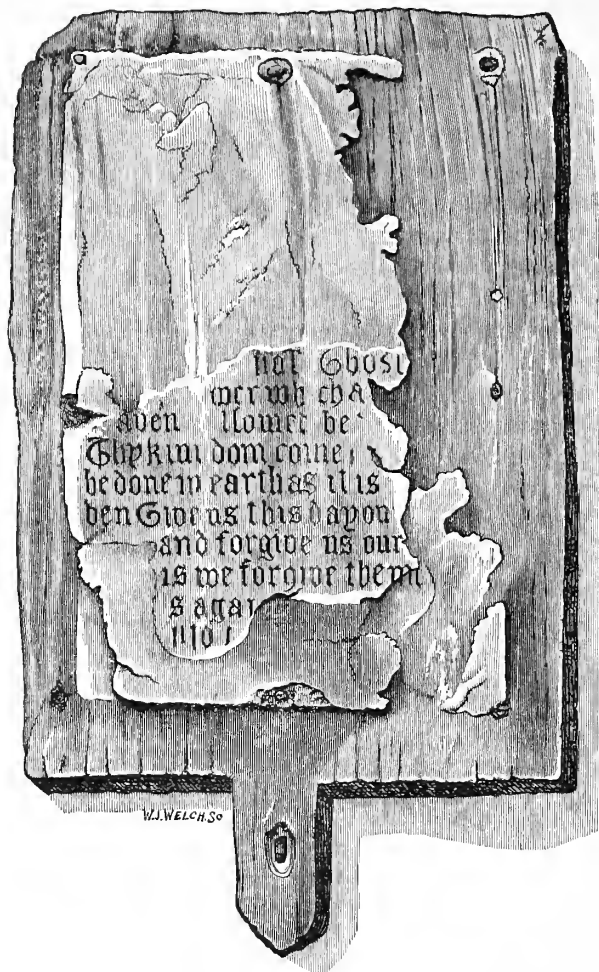 hol Ghost
wer wh cha
aven llowet be
Thy kin dom come,
be done in earth as it is
ven Give us this day ou
and forgive us our
is we forgive them
s agai
W.J.WELCH.Sc